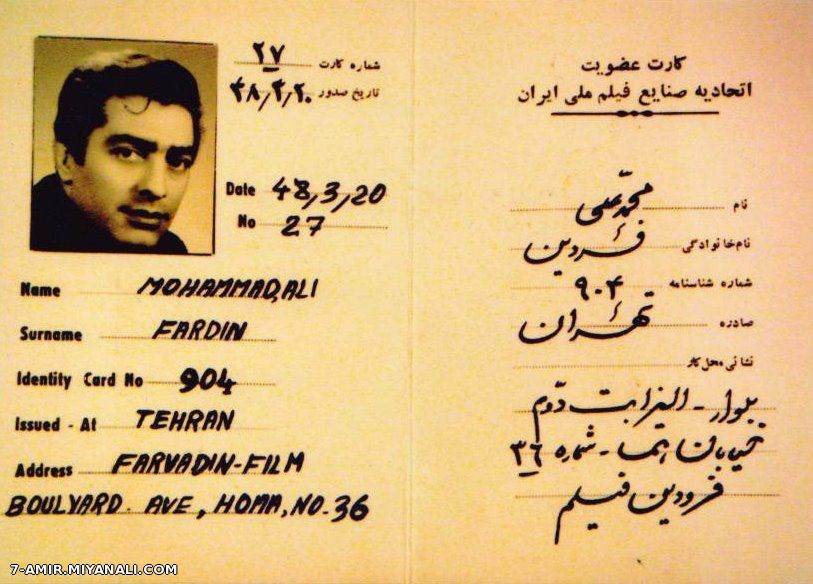 شماره کارت ۲۷
تاریخ صدور ۴۸/۳/۲۰
Date 48,3,20
No 27
Name MOHAMMAD,ALI
Surname FARDIN
Identity Card No 904
Issued - At TEHRAN
Address FARVADIN-FILM
BOULVARD. AVE, HOMA, NO-36
کارت عضویت
اتحادیه صنایع فیلم ملی ایران
نام محمدعلی
نام خانوادگی فردین
شماره شناسنامه ۹۰۴
صادره تهران
نشانی محل کار
بلوار - الیزابت دوم
خیابان هما - شماره ۳۶
فرودین فیلم
7-AMIR.MIYANALI.COM